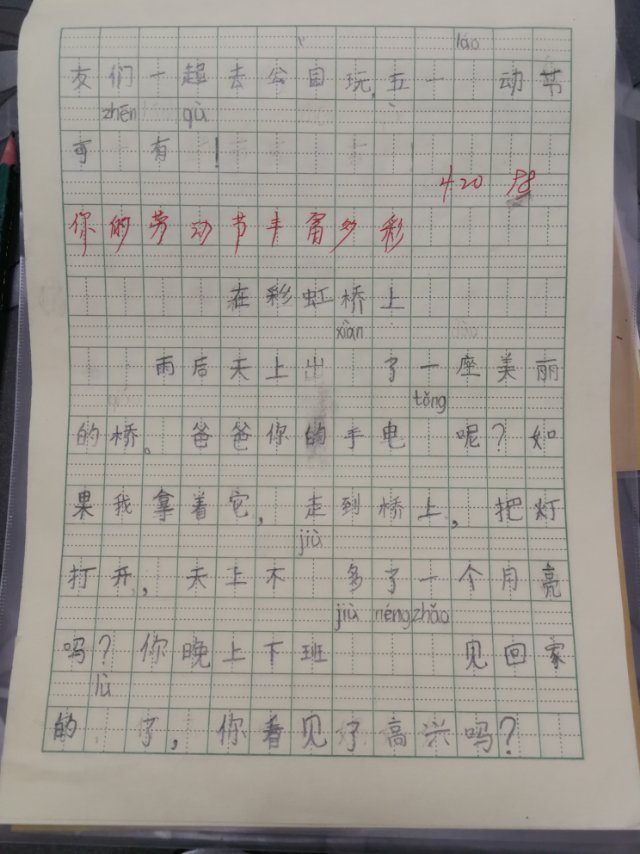 láo
友们一起去公园玩,五一 动节
zhēn qù
可 有!
4.20
你的劳动节丰富多彩
在彩虹桥上
xiàn
雨后天上出 了一座美丽
tǒng
的桥。爸爸你的手电 呢?如
果我拿着它, 走到桥上,把灯
jiù
打开,天上不 多了一个月亮
jiù néng zhǎo
吗?你晚上下班 见回家
lù
的 了,你看见了高兴吗?